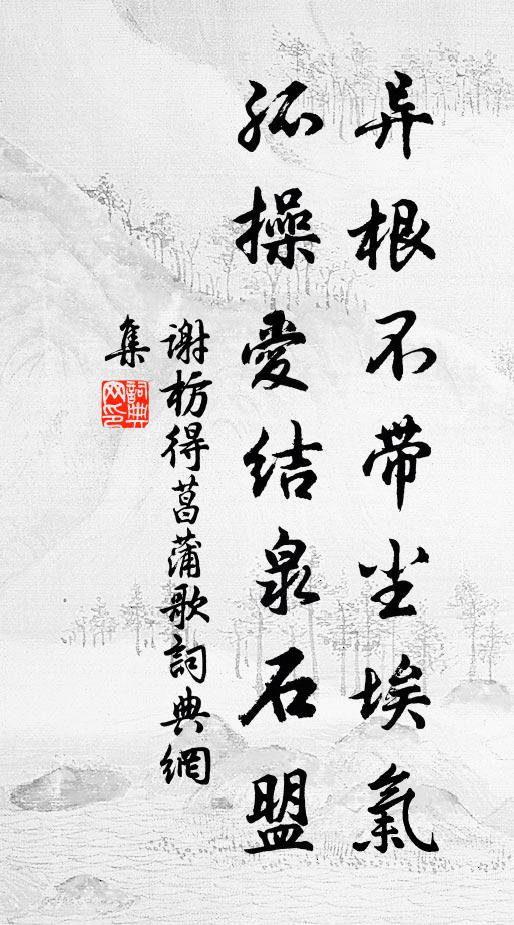 异根不带尘埃氣
孤操愛结泉石盟
谢枋得菖蒲歌詞典網
集
詞典网印